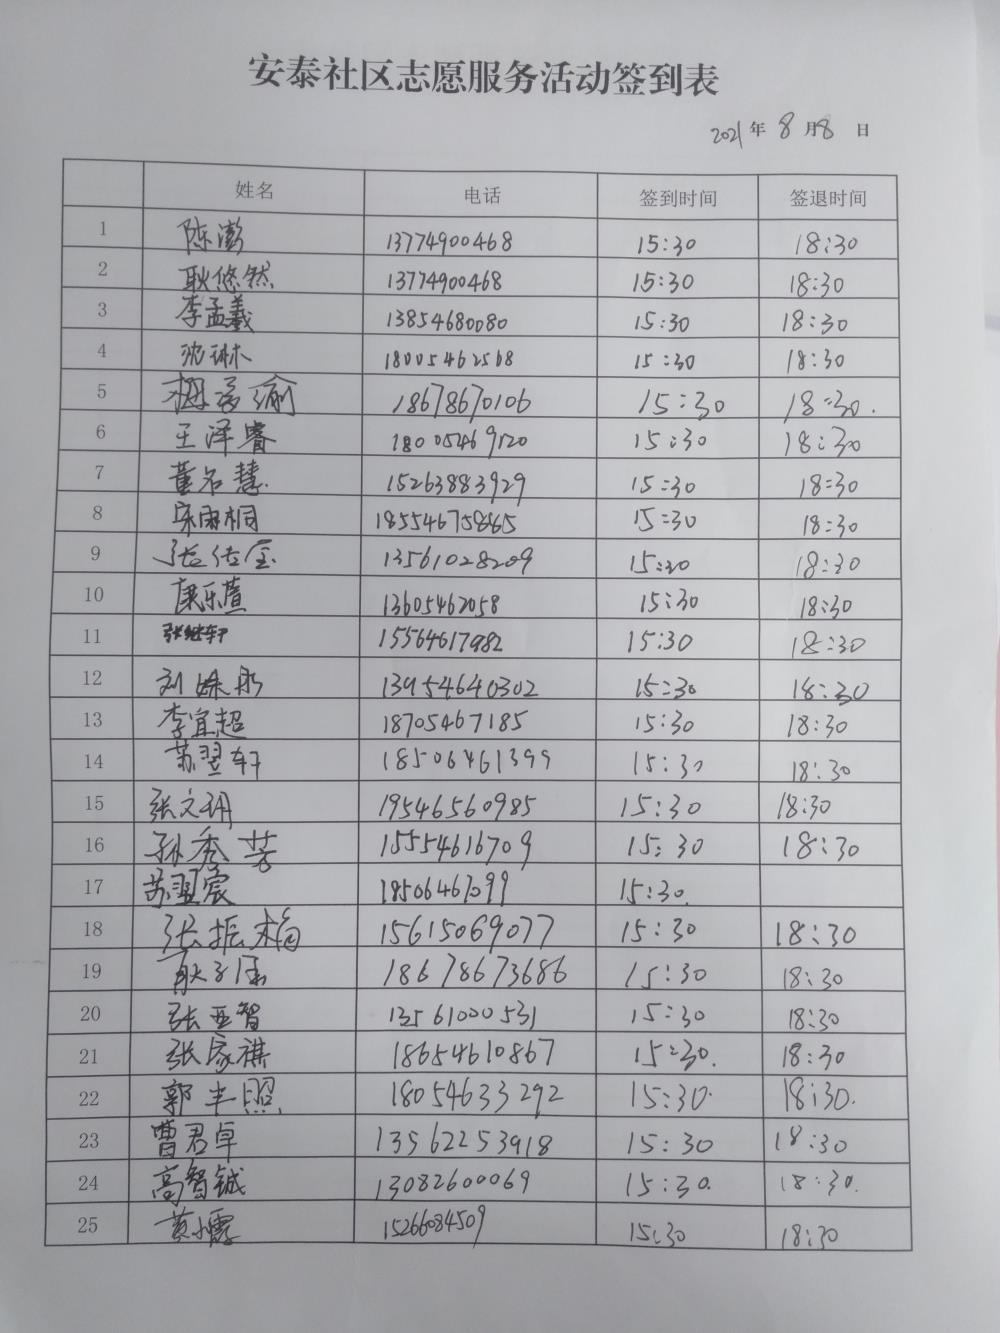 安泰社区志愿服务活动签到表
2021年 8月8日
姓名 电话 签到时间 签退时间
1 陈澎 13774900468 15:30 18:30
2 耿悠然 13774900468 15:30 18:30
3 李孟羲 13854680080 15:30 18:30
4 沈琳 18005462568 15:30 18:30
5 18678670106 15:30 18:30.
6 王泽睿 18005469120 15:30 18:30
7 董名慧 15263883929 15:30 18:30
8 宋雨桐 18554675865 15:30 18:30
9 13561028209 15:30 18:30
10 康乐萱 13605462058 15:30 18:30
11 张继轩 15564617982 15:30 18:30
12 刘姝彤 13954640302 15:30 18:30
13 李宜超 18705467185 15:30 18:30
14 苏翌轩 18506461399 15:30 18:30
15 张文玥 19546560985 15:30 18:30
16 孙秀芳 15554616709 15:30 18:30
17 苏翌宸 15:30.
18 张振梅 15615069077 15:30 18:30
19 18678673686 15:30 18:30
20 张亚智 13561000531 15:30 18:30
21 张家祺 18654610867 15:30. 18:30
22 郭丰照 18054633292 15:30. 18:30.
23 曹君卓 13562253918 15:30 18:30
24 高智铖 13082600069 15:30. 18:30.
25 15266084509 15:30 18:30